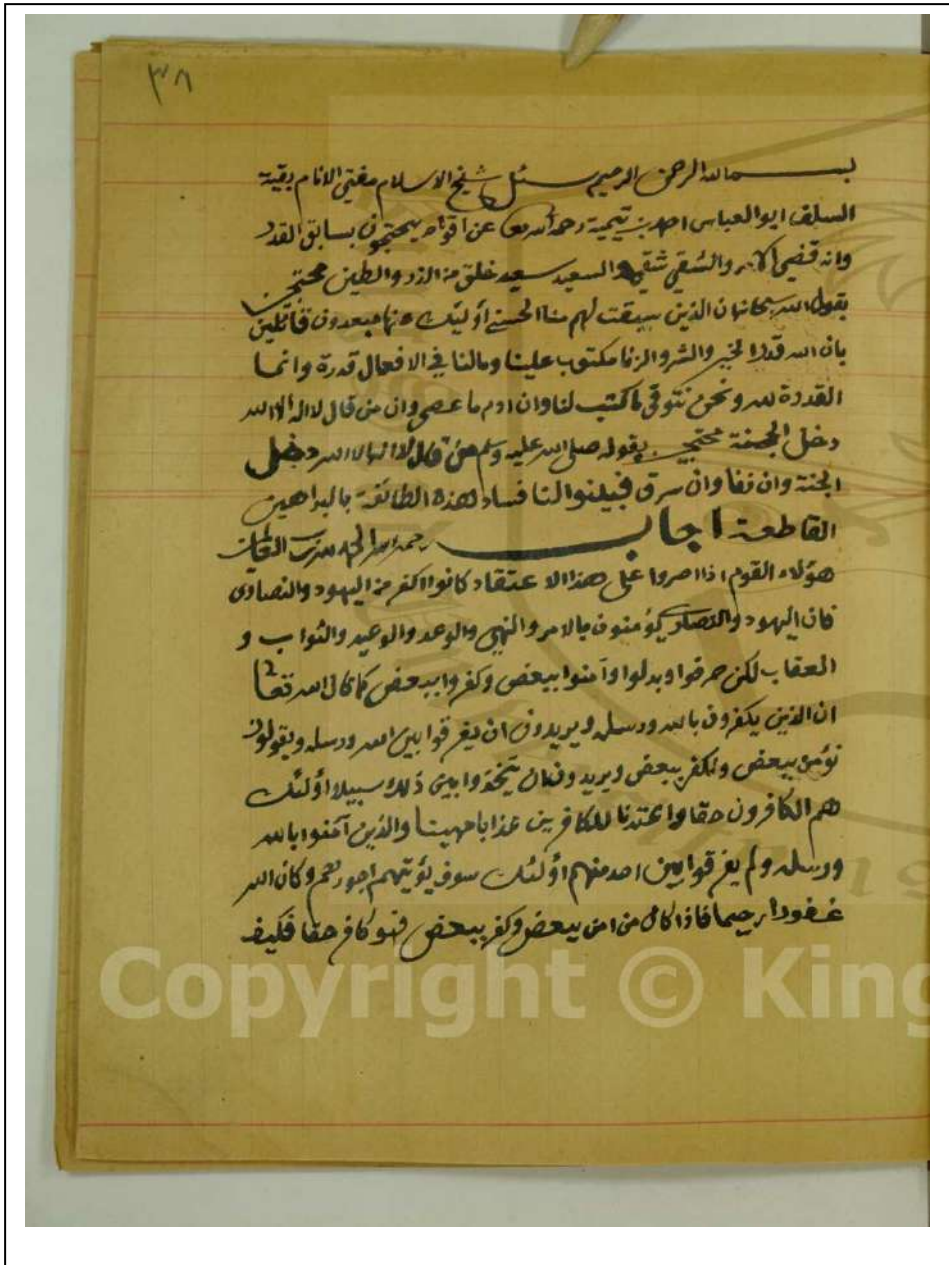 ٣٨
بسم الله الرحمن الرحيم سئل شيخ الاسلام مفتي الانام بقية
السلف ابو العباس احمد بن تيمية رحمه الله تعا عن اقوام يحتجون بسابق القدر
وانه قضي الامر والشقي شقي والسعيد سعيد خلق من الذر والطين محتجين
بقول الله سبحانه ان الذين سبقت لهم منا الحسنى أولئك عنها مبعدون قائلين
بان الله قدر الخير والشر والزنا مكتوب علينا ومالنا في الافعال قدرة وانما
القدرة لله ونحن نتوقى ما كتب لنا وان ادم ما عصى وان من قال لا اله الا الله
دخل الجنة محتجين بقوله صلى الله عليه وسلم من قال لا اله الا الله دخل
الجنة وان زنا وان سرق فبينوا لنا فساد هذه الطائفة بالبراهين
القاطعة اجاب رحمه الله الحمد لله رب العالمين
هؤلاء القوم اذا اصروا على هذا الاعتقاد كانوا اكفر من اليهود والنصارى
فان اليهود والنصارى يؤمنون بالامر والنهي والوعد والوعيد والثواب و
العقاب لكن حرفوا وبدلوا وآمنوا ببعض وكفروا ببعض كما قال الله تعا
ان الذين يكفرون بالله ورسله ويريدون ان يفرقوا بين الله ورسله ويقولون
نؤمن ببعض ونكفر ببعض ويريدون ان يتخذوا بين ذلك سبيلا أولئك
هم الكافرون حقا واعتدنا للكافرين عذابا مهينا والذين آمنوا بالله
ورسله ولم يفرقوا بين احد منهم اؤلئك سوف يؤتيهم اجورهم وكان الله
غفورا رحيما فاذا كان من امن ببعض وكفر ببعض فهو كافر حقا فكيف
Copyright © King